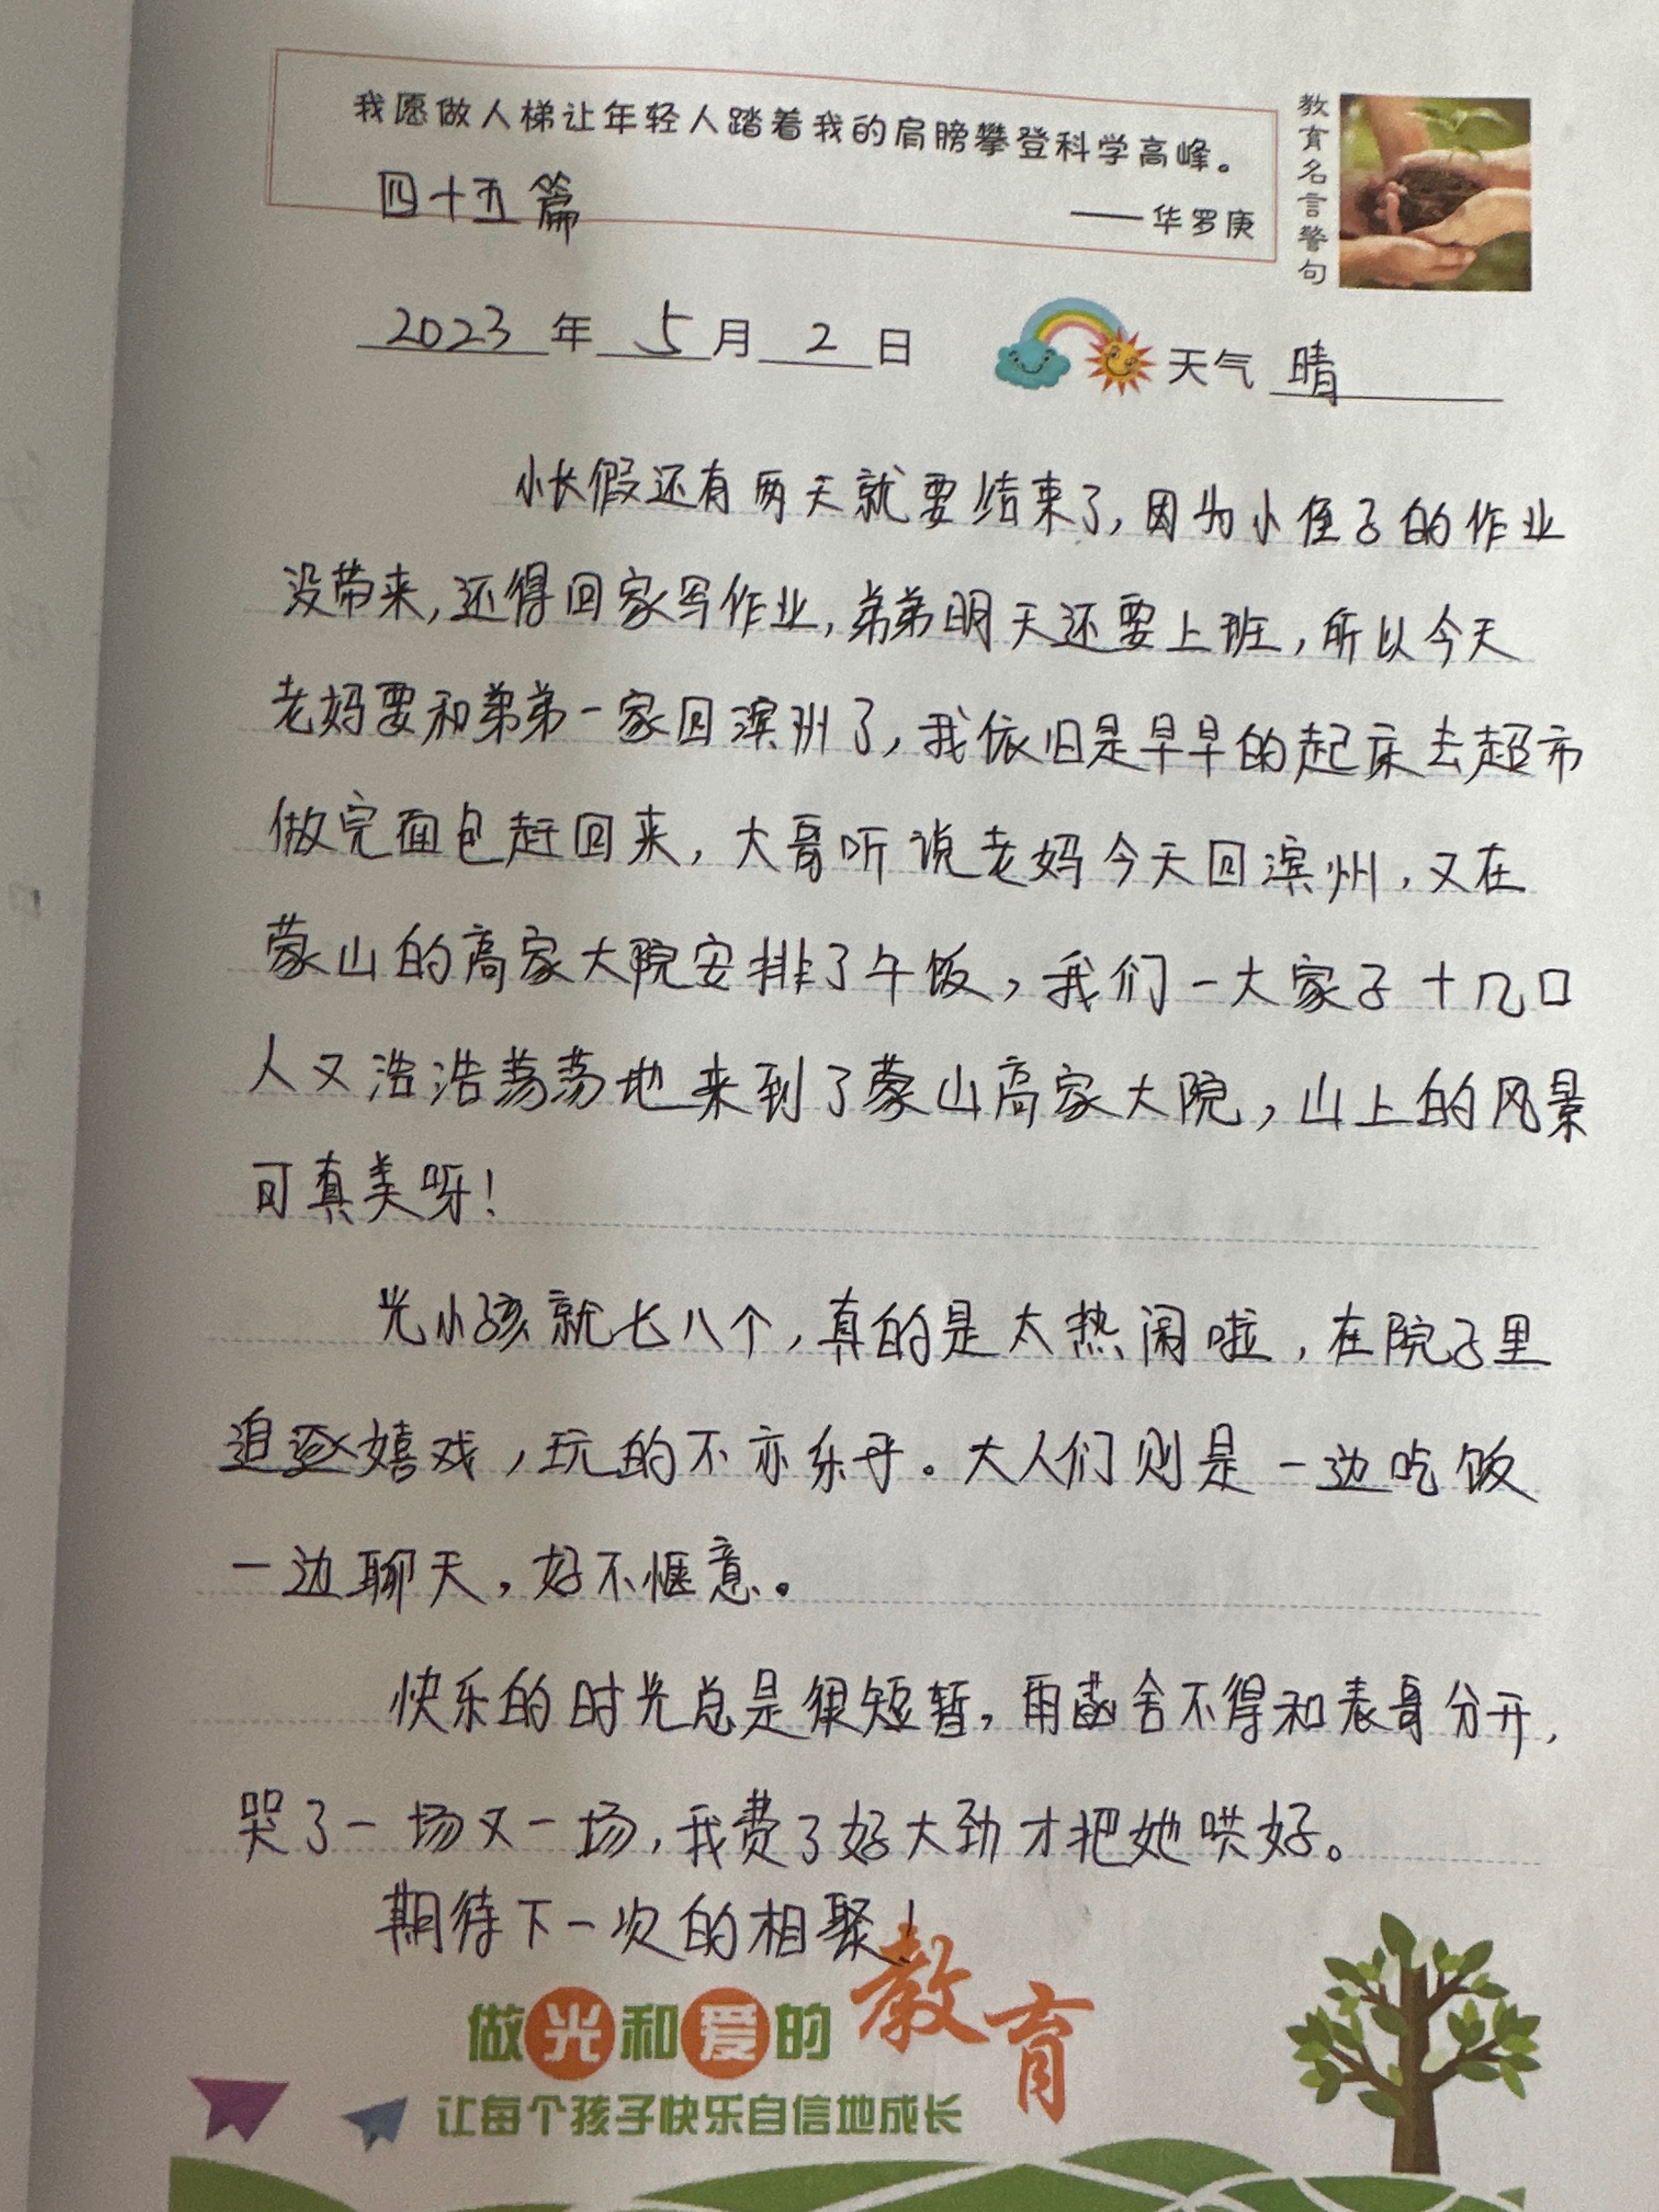 我愿做人梯让年轻人踏着我的肩膀攀登科学高峰。
四十五篇
——华罗庚
教育名言警句
2023年5月2日
天气 晴
小长假还有两天就要结束了,因为小侄子的作业
没带来,还得回家写作业,弟弟明天还要上班,所以今天
老妈要和弟弟一家回滨洲了,我依旧是早早的起床去超市
做完面包赶回来,大哥听说老妈今天回滨州,又在
蒙山的高家大院安排了午饭,我们一大家子十几口
人又浩浩荡荡地来到了蒙山高家大院,山上的风景
可真美呀!
光小孩就七八个,真的是太热闹啦,在院子里
追逐嬉戏,玩的不亦乐乎。大人们则是一边吃饭
一边聊天,好不惬意。
快乐的时光总是很短暂,雨菡舍不得和表哥分开,
哭了一场又一场,我费了好大劲才把她哄好。
期待下一次的相聚!
做光和爱的教育
让每个孩子快乐自信地成长